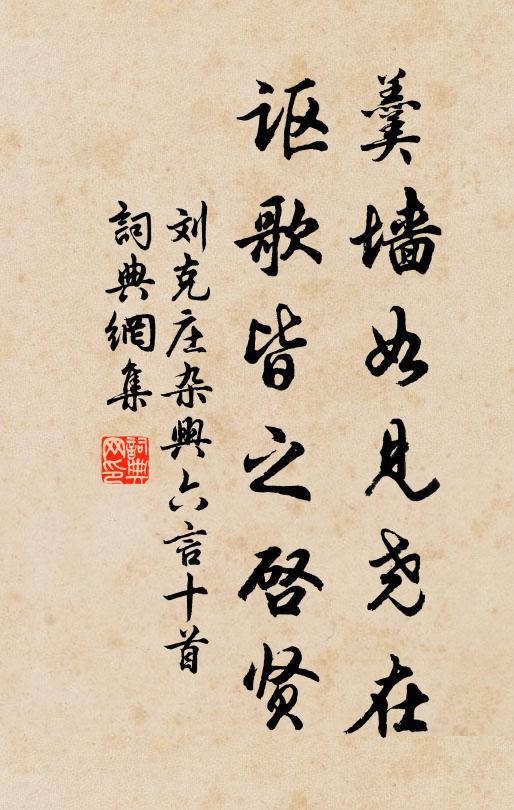 羹墙如见尧在
讴歌皆之启贤
刘克庄杂興六言十首
詞典網集
詞典網印